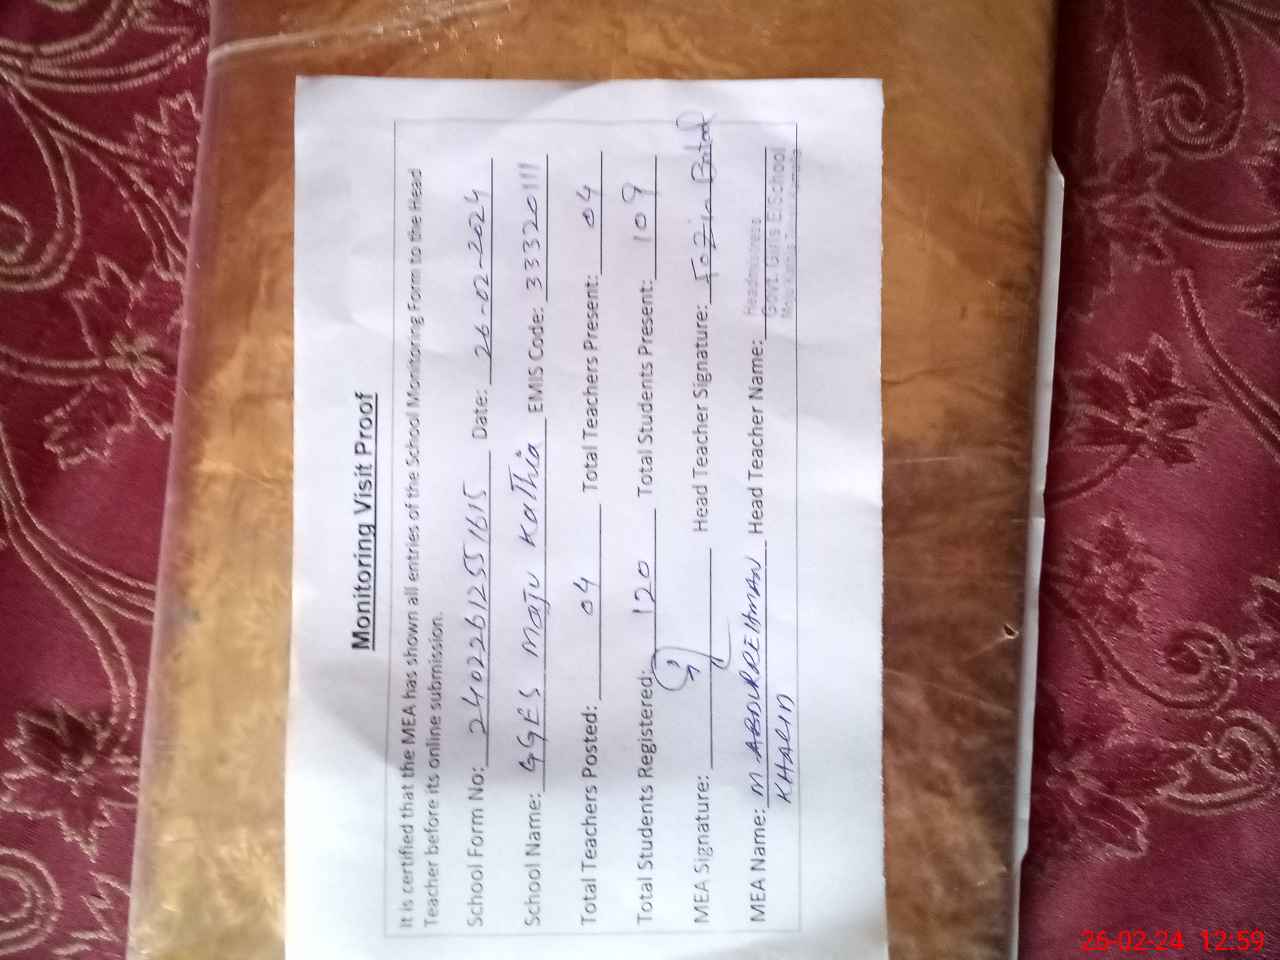 Monitoring Visit Proof
It is certified that the MEA has shown all entries of the School Monitoring Form to the Head
Teacher before its online submission.
School Form No: 24022612551615 Date: 26-02-2024
School Name: GGES Maju Kathia EMIS Code: 33320111
Total Teachers Posted: 04 Total Teachers Present: 04
Total Students Registered: 120 Total Students Present: 109
MEA Signature: Head Teacher Signature: Fozia Batool
MEA Name: M ABDURREHMAN Head Teacher Name:
KHALID
Headmistress
Govt. Girls E/School
26-02-24 12:59